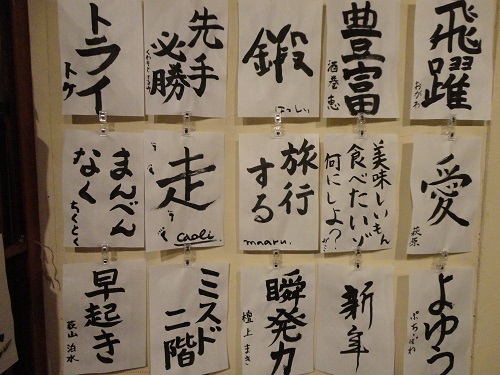 トライ
トケ
先手
必勝
鍛
はっしぃ
豊富
酒巻 恵
飛躍
おがわ
まんべん
なく
ちくとく
走
caoli.
旅行
する
maaru.
美味しいもん
食べたいゾ
何にしよ?
愛
萩原
早起き
ミスド
二階
瞬発力
檀上 まき
新年
よゆう